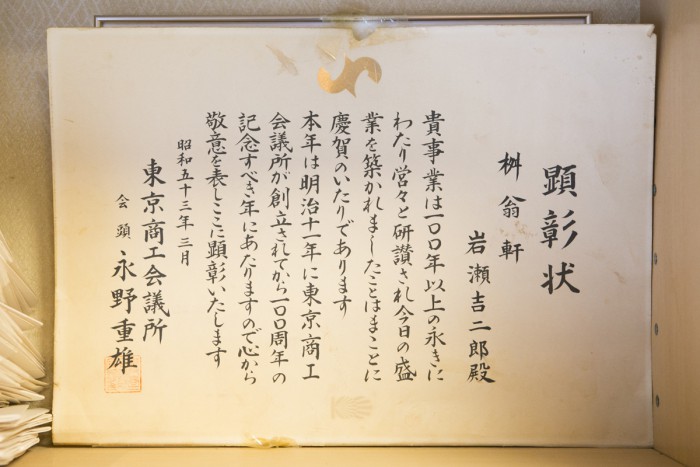 顕彰状
桝翁軒
岩瀬吉二郎殿
貴事業は一〇〇年以上の永きに
わたり営々と研讃され今日の盛
業を築かれましたことはまことに
慶賀のいたりであります
本年は明治十一年に東京商工
会議所が創立されてから一〇〇周年の
記念すべき年にあたりますので心から
敬意を表しここに顕彰いたします
昭和五十三年三月
東京商工会議所
会頭 永野重雄